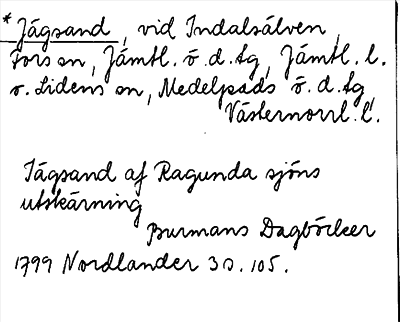 * Jägsand, vid Indalsälven,
Fors sn, Jämtl. ö. d. tg, Jämtl. l.
o. Lidens sn, Medelpads ö. d. tg
Västernorrl. l.
Tägsand af Ragunda sjöns
utskärning
Burmans Dagböcker
1799 Nordlander 3 s. 105.